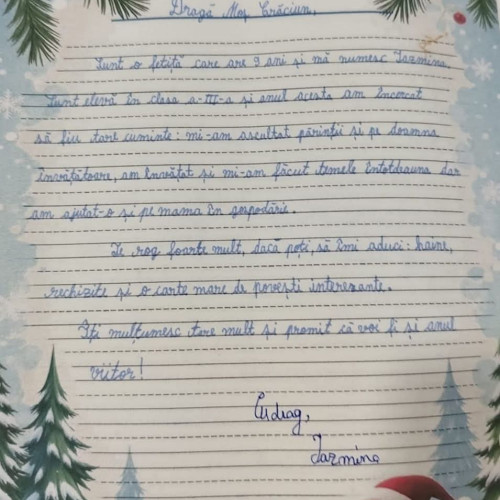 Dragă Moș Crăciun,
Sunt o fetiță care are 9 ani și mă numesc Iazmina.
Sunt elevă în clasa a-III-a și anul acesta am încercat
să fiu tare cuminte: mi-am ascultat părinții și pe doamna
învățătoare, am învățat și mi-am făcut temele întotdeauna dar
am ajutat-o și pe mama în gospodărie.
Te rog foarte mult, dacă poți, să îmi aduci: haine,
rechizite și o carte mare de povești interesante.
Îți mulțumesc tare mult și promit că voi fi și anul
viitor!
Cu drag,
Iazmina